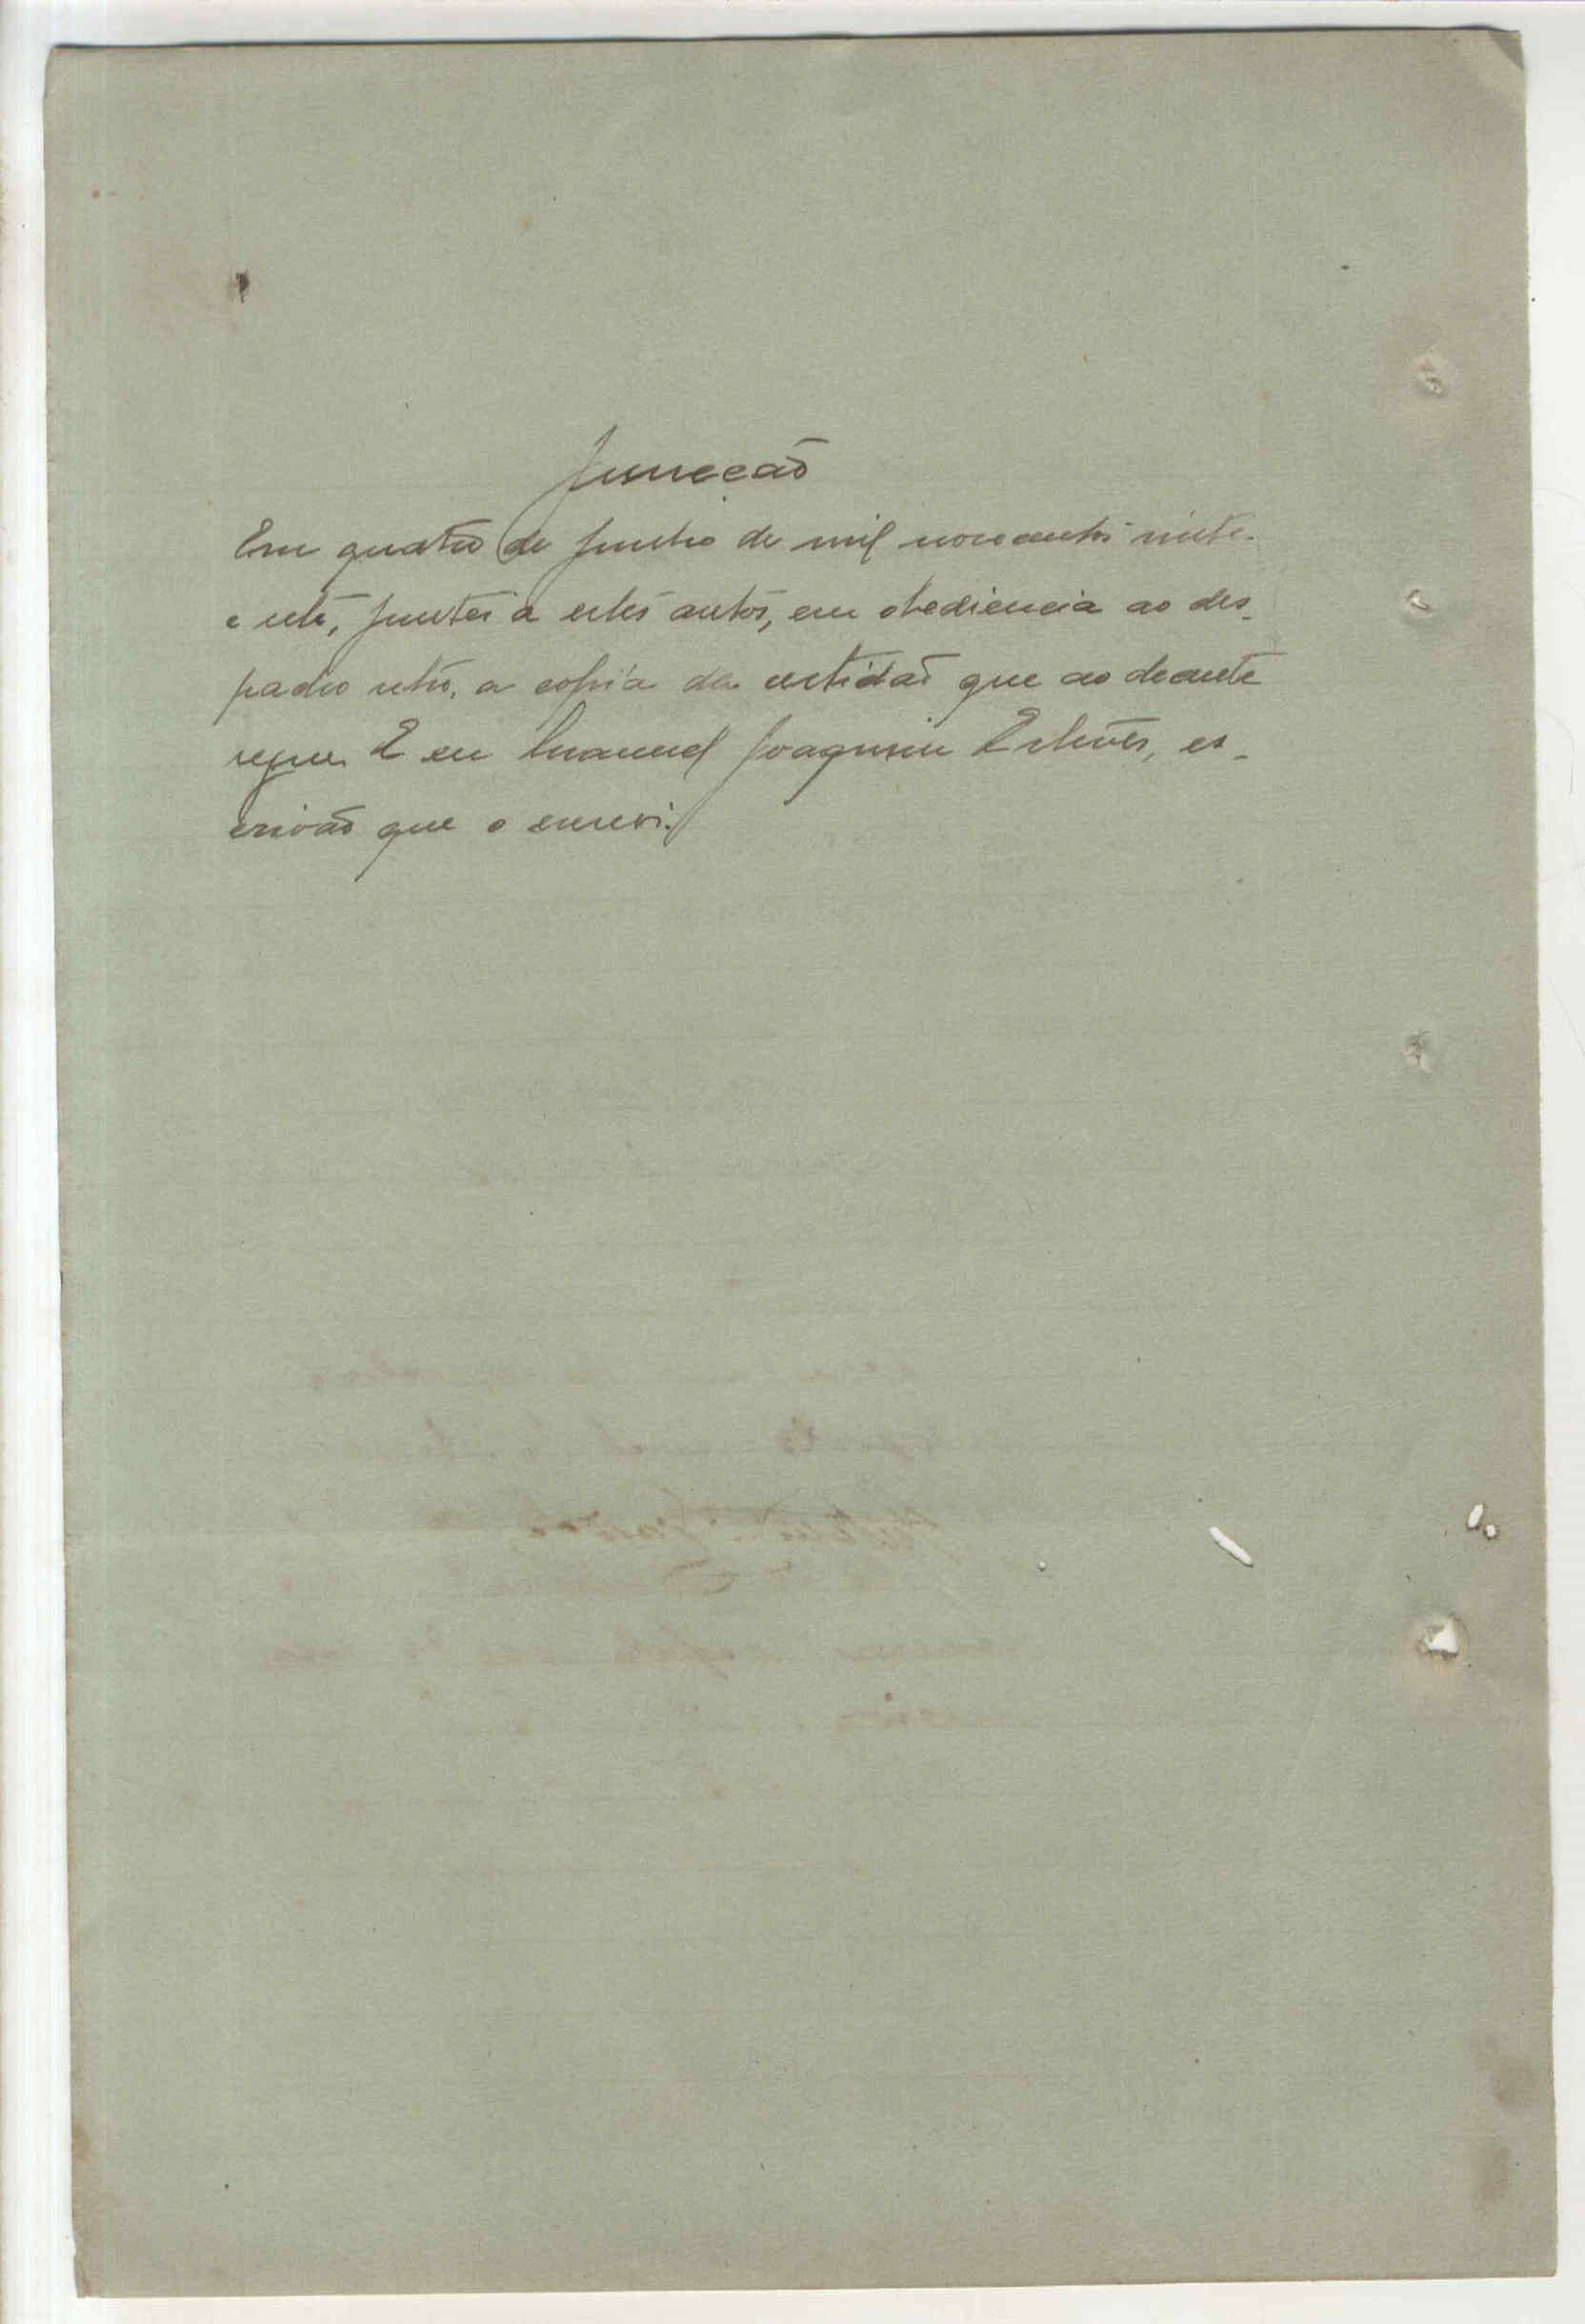 Juncção
Em quatro de Junho de mil novecentos vinte
e sete, juntei a estes autos, em obediencia ao des-
pacho retro, a copia da certidão que ao deante
segue. E eu Manuel Joaquim Esteves, es-
crivão que o escrevi.